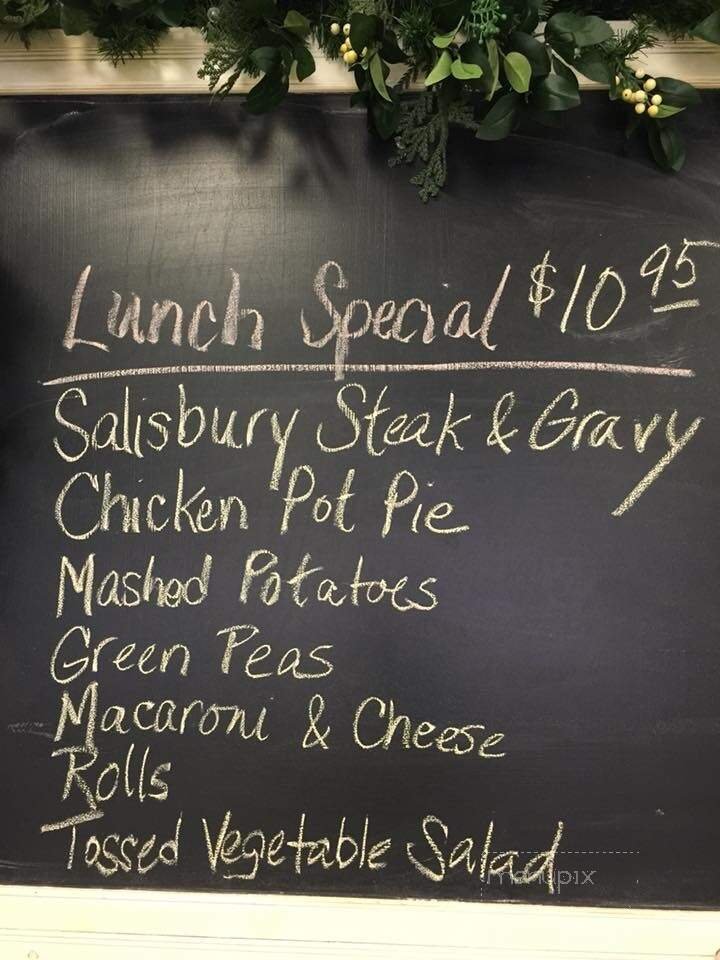 Lunch Special $10 95
Salisbury Steak & Gravy
Chicken Pot Pie
Mashed Potatoes
Green Peas
Macaroni & Cheese
Rolls
Tossed Vegetable Salad
menupix